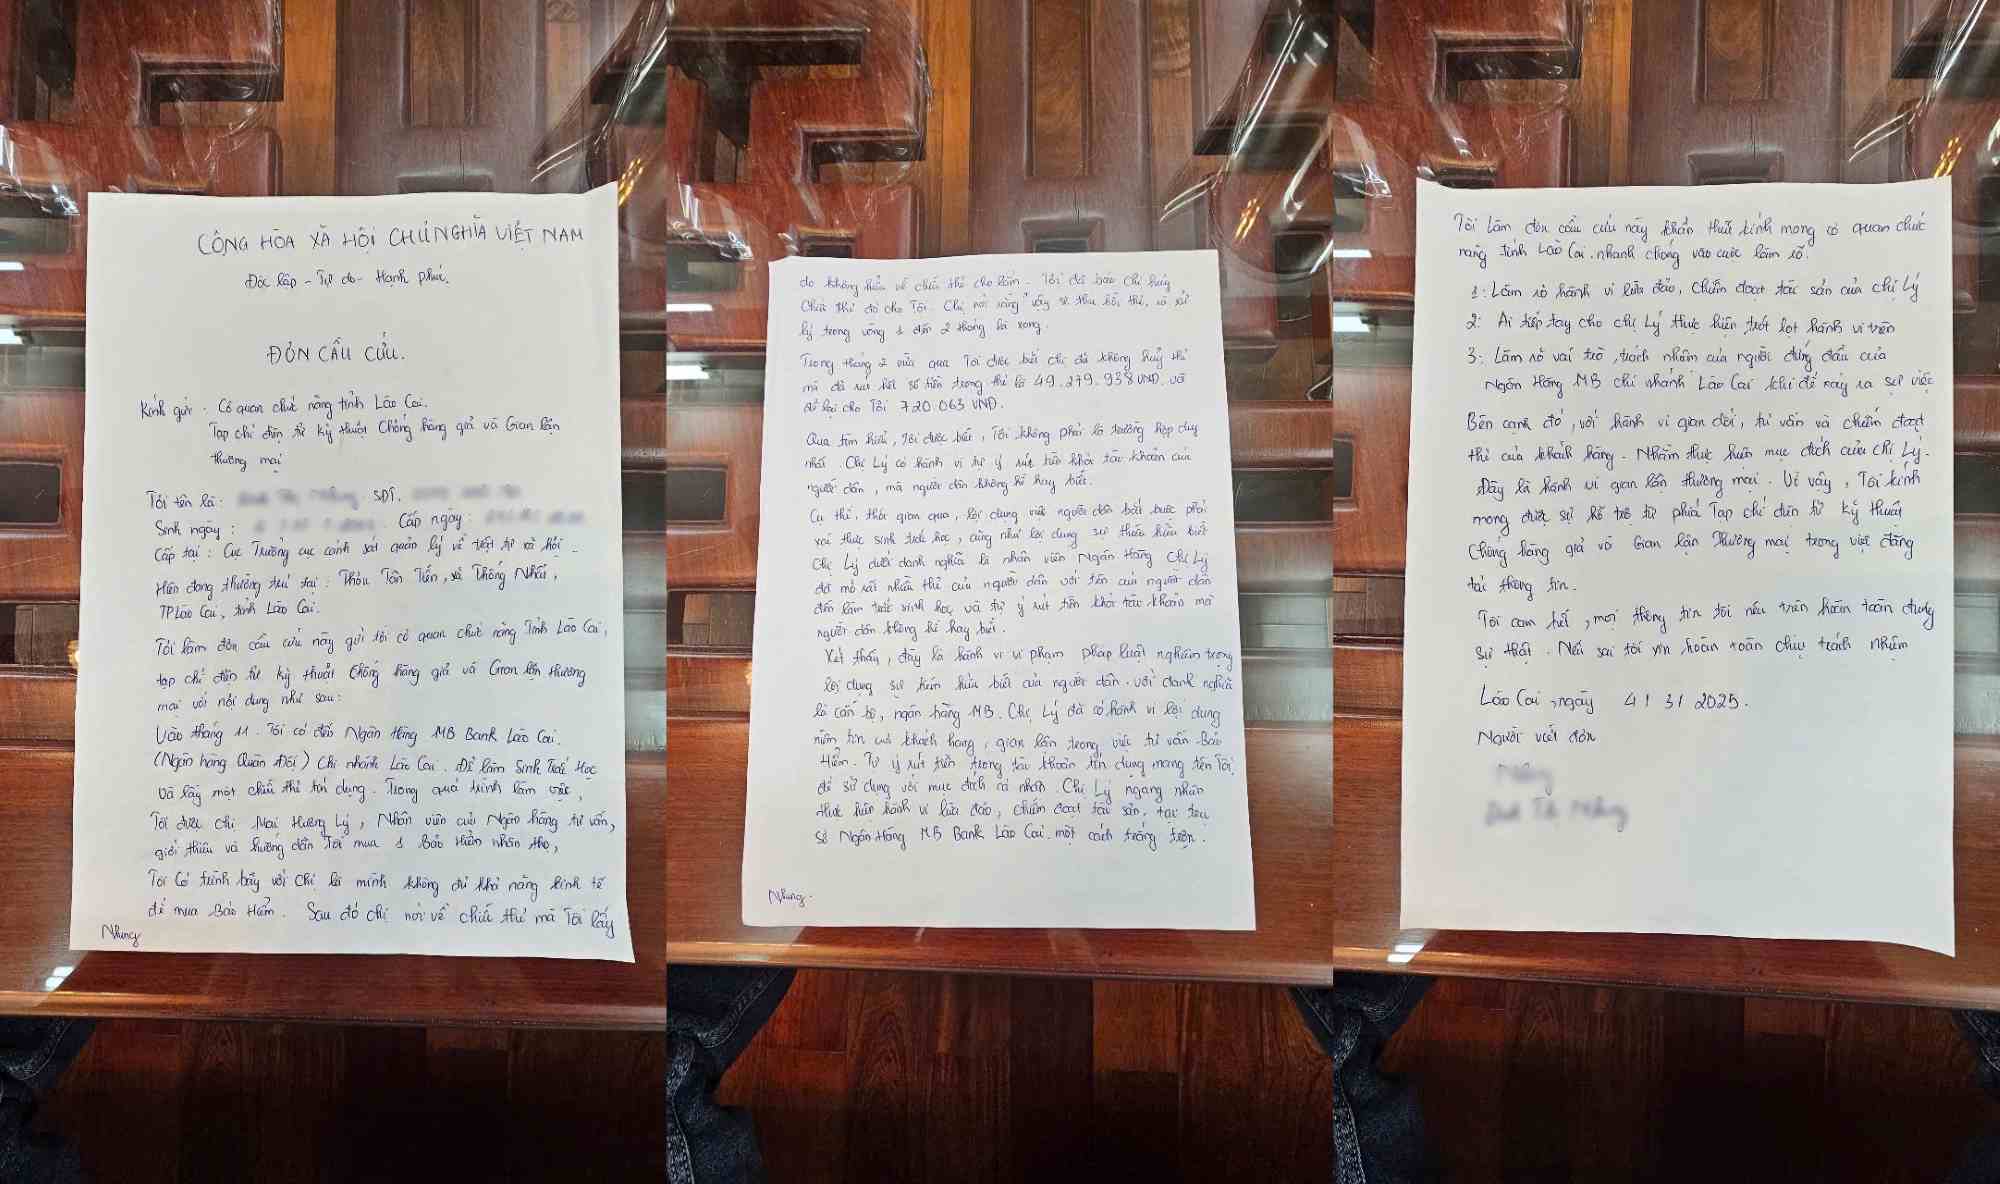 CỘNG HÒA XÃ HỘI CHỦ NGHĨA VIỆT NAM
Độc lập - Tự do - Hạnh phúc.
ĐƠN CẦU CỨU.
Kính gửi. Cơ quan chức năng tỉnh Lào Cai.
Tạp chí điện tử Kỹ thuật Chống hàng giả và Gian lận
thương mại
Tôi tên là: SĐT.
Sinh ngày: Cấp ngày:
Cấp tại: Cục Trưởng cục cảnh sát quản lý về trật tự xã hội -
Hiện đang thường trú tại: Thôn Tân Tiến, xã Thống Nhất,
TP Lào Cai, tỉnh Lào Cai.
Tôi làm đơn cầu cứu này gửi tới cơ quan chức năng Tỉnh Lào Cai,
tạp chí điện tử kỹ thuật Chống hàng giả và Gian lận thương
mại với nội dung như sau:
Vào tháng 11. Tôi có đến Ngân Hàng MB Bank Lào Cai.
(Ngân hàng Quân Đội) Chi nhánh Lào Cai. Để làm Sinh Trắc Học
và lấy một chiếc thẻ tín dụng. Trong quá trình làm việc,
Tôi được chị Mai Hương Lý, Nhân viên của Ngân hàng tư vấn,
giới thiệu và hướng dẫn Tôi mua 1 Bảo Hiểm nhân thọ,
Tôi Có trình bày với Chị là mình không đủ khả năng kinh tế
để mua Bảo Hiểm. Sau đó chị nói về chiếc thẻ mà Tôi lấy
Nhung
do không hiểu về chiếc thẻ cho lắm. Tôi đã bảo Chị huỷ
Chiếc thẻ đó cho Tôi. Chị nói rằng sẽ thu hồi thẻ, và xử
lý trong vòng 1 đến 2 tháng là xong.
Trong tháng 2 vừa qua Tôi được biết chị đã không huỷ thẻ
mà đã rút hết số tiền trong thẻ là 49.279.938 VND. và
để lại cho Tôi 720.063 VND.
Qua tìm hiểu, Tôi được biết, Tôi không phải là trường hợp duy
nhất. Chị Lý có hành vi tự ý rút tiền khỏi tài khoản của
người dân, mà người dân không hề hay biết.
Cụ thể, thời gian qua, lợi dụng việc người dân bắt buộc phải
xác thực sinh trắc học, cũng như lợi dụng sự thiếu hiểu biết
Chị Lý dưới danh nghĩa là nhân viên Ngân Hàng Chị Lý
đã mở rất nhiều thẻ của người dân với tên của người dân
đến làm trắc sinh học và tự ý rút tiền khỏi tài khoản mà
người dân không hề hay biết.
Xét thấy, đây là hành vi vi phạm pháp luật nghiêm trọng
lợi dụng sự thiếu hiểu biết của người dân. với danh nghĩa
là cán bộ, ngân hàng MB. Chị Lý đã có hành vi lợi dụng
niềm tin của khách hàng, gian lận trong việc tư vấn Bảo
Hiểm. Tự ý rút tiền trong tài khoản tín dụng mang tên Tôi,
để sử dụng với mục đích cá nhân. Chị Lý ngang nhiên
thực hiện hành vi lừa đảo, chiếm đoạt tài sản, tại trụ
sở Ngân Hàng MB Bank Lào Cai. một cách trắng trợn.
Nhung.
Tôi làm đơn cầu cứu này khẩn thiết kính mong cơ quan chức
năng tỉnh Lào Cai. nhanh chóng vào cuộc làm rõ.
1: Làm rõ hành vi lừa đảo, Chiếm đoạt tài sản của chị Lý
2: Ai tiếp tay cho chị Lý thực hiện trót lọt hành vi trên
3: Làm rõ vai trò, trách nhiệm của người đứng đầu của
Ngân Hàng MB chi nhánh Lào Cai khi để xảy ra sự việc
Bên cạnh đó, với hành vi gian dối, tư vấn và chiếm đoạt
thẻ của khách hàng. Nhằm thực hiện mục đích của chị Lý.
Đây là hành vi gian lận thương mại. Vì vậy, Tôi kính
mong được sự hỗ trợ từ phía Tạp chí điện tử Kỹ thuật
Chống hàng giả và Gian lận Thương mại trong việc đăng
tải thông tin.
Tôi cam kết, mọi thông tin tôi nêu trên hoàn toàn đúng
sự thật. Nếu sai tôi xin hoàn toàn chịu trách nhiệm
Lào Cai, ngày 4/3/2025.
Người viết đơn